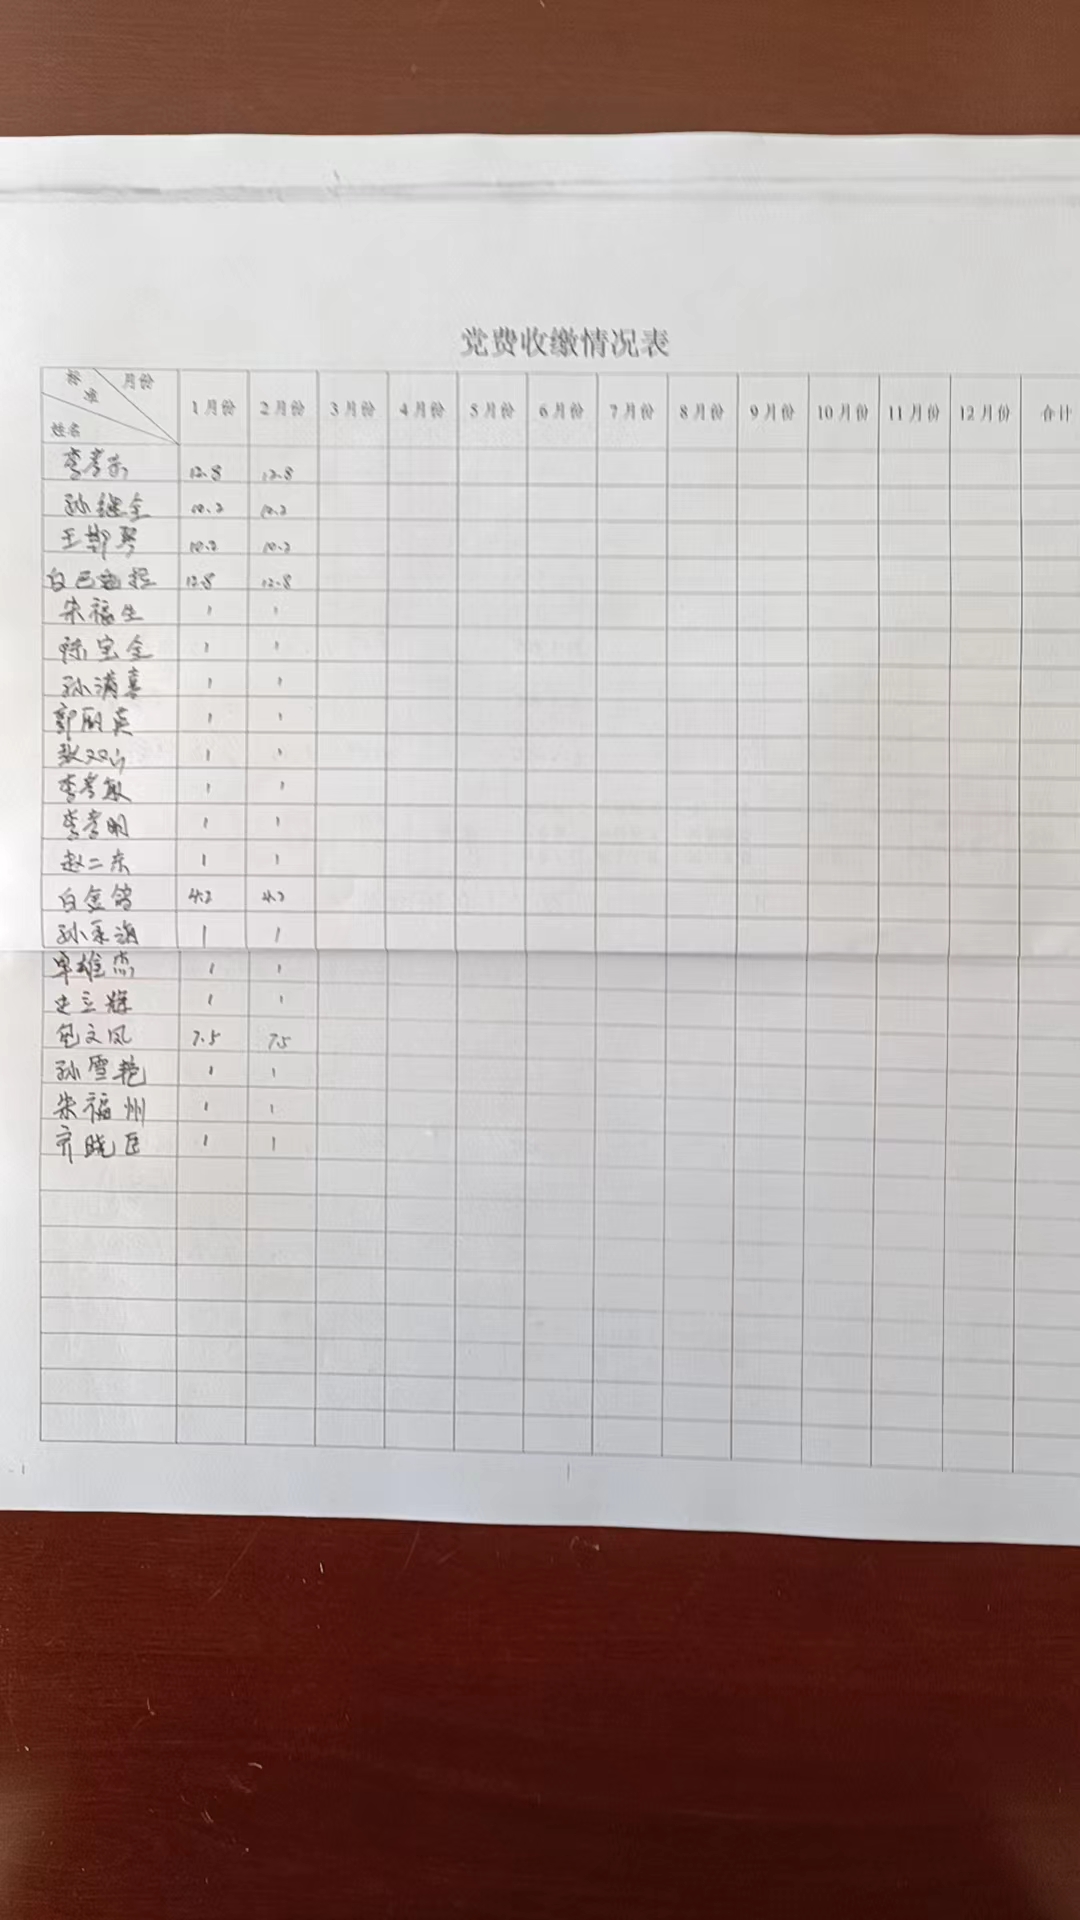 党费收缴情况表
标准 月份 姓名 1月份 2月份 3月份 4月份 5月份 6月份 7月份 8月份 9月份 10月份 11月份 12月份 合计
12.8 12.8
孙继全 10.2 10.2
王 10.2 10.2
白 12.8 12.8
朱福生 1 1
陈宝全 1 1
孙清喜 1 1
郭丽英 1 1
张双山 1 1
李孝敏 1 1
李孝明 1 1
赵二东 1 1
白金鸽 4.2 4.2
孙 海 1 1
单雄杰 1 1
史立辉 1 1
包文凤 7.5 7.5
孙雪艳 1 1
朱福州 1 1
齐晓臣 1 1